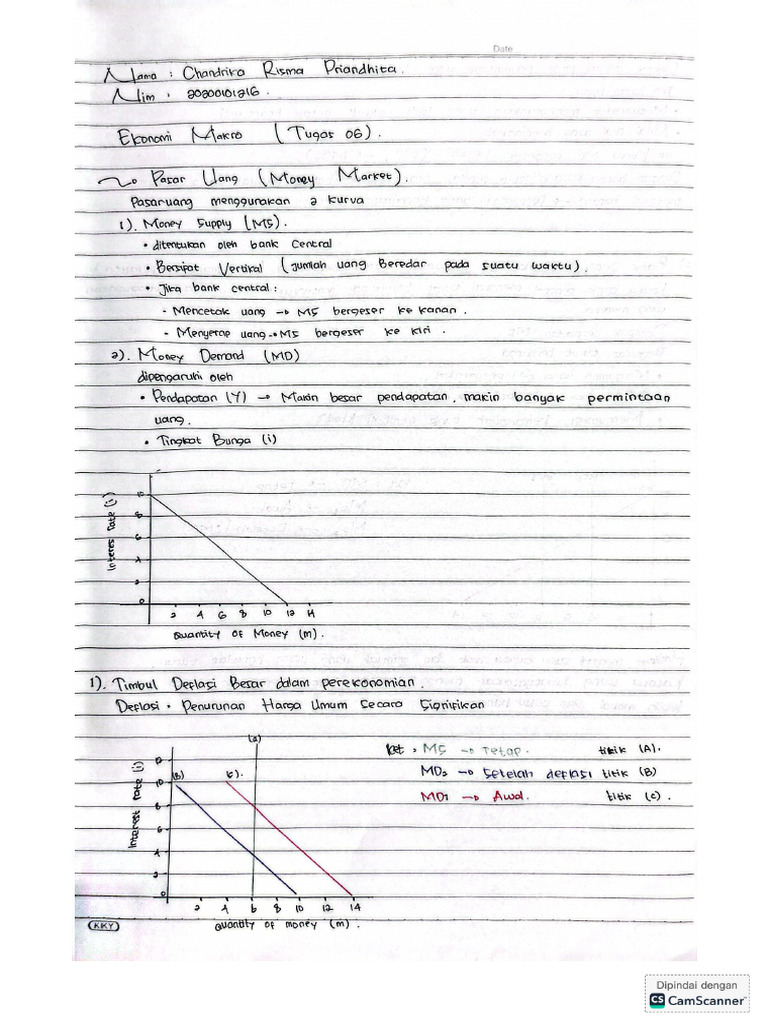 Date
Nama : Chandrika Risma Priandhita.
Nim : 20200101216.
Ekonomi Makro (Tugas 06).
Pasar Uang (Money Market).
Pasar uang menggunakan 2 kurva
1). Money Supply (MS).
• ditentukan oleh bank central
• Bersifat Vertikal (jumlah uang Beredar pada suatu waktu).
• Jika bank central :
- Mencetak uang → MS bergeser ke kanan.
- Menyerap uang → MS bergeser ke kiri.
2). Money Demand (MD)
dipengaruhi oleh
• Pendapatan (Y) → Makin besar pendapatan, makin banyak permintaan
uang.
• Tingkat Bunga (i)
Interes Rate (i)
10
8
6
4
2
0
2 4 6 8 10 12 14
Quantity of Money (m).
1). Timbul Deflasi Besar dalam perekonomian.
Deflasi : Penurunan Harga Umum Secara Signifikan
(a)
ket : MS → Tetap. titik (A).
MD2 → Setelah deflasi titik (B)
MD1 → Awal. titik (c).
Interest rate (i)
12
10 (B) (c).
8
6
4
2
0
2 4 6 8 10 12 14
Quantity of money (m).
KKY
Dipindai dengan
CS CamScanner